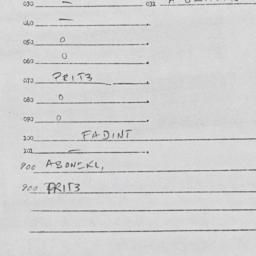 030 –
040 –
050 0
060 0
070 PRIT3
080 0
090 0
200 FADINT
202 –
900 ABONEKL,
900 PRIT3